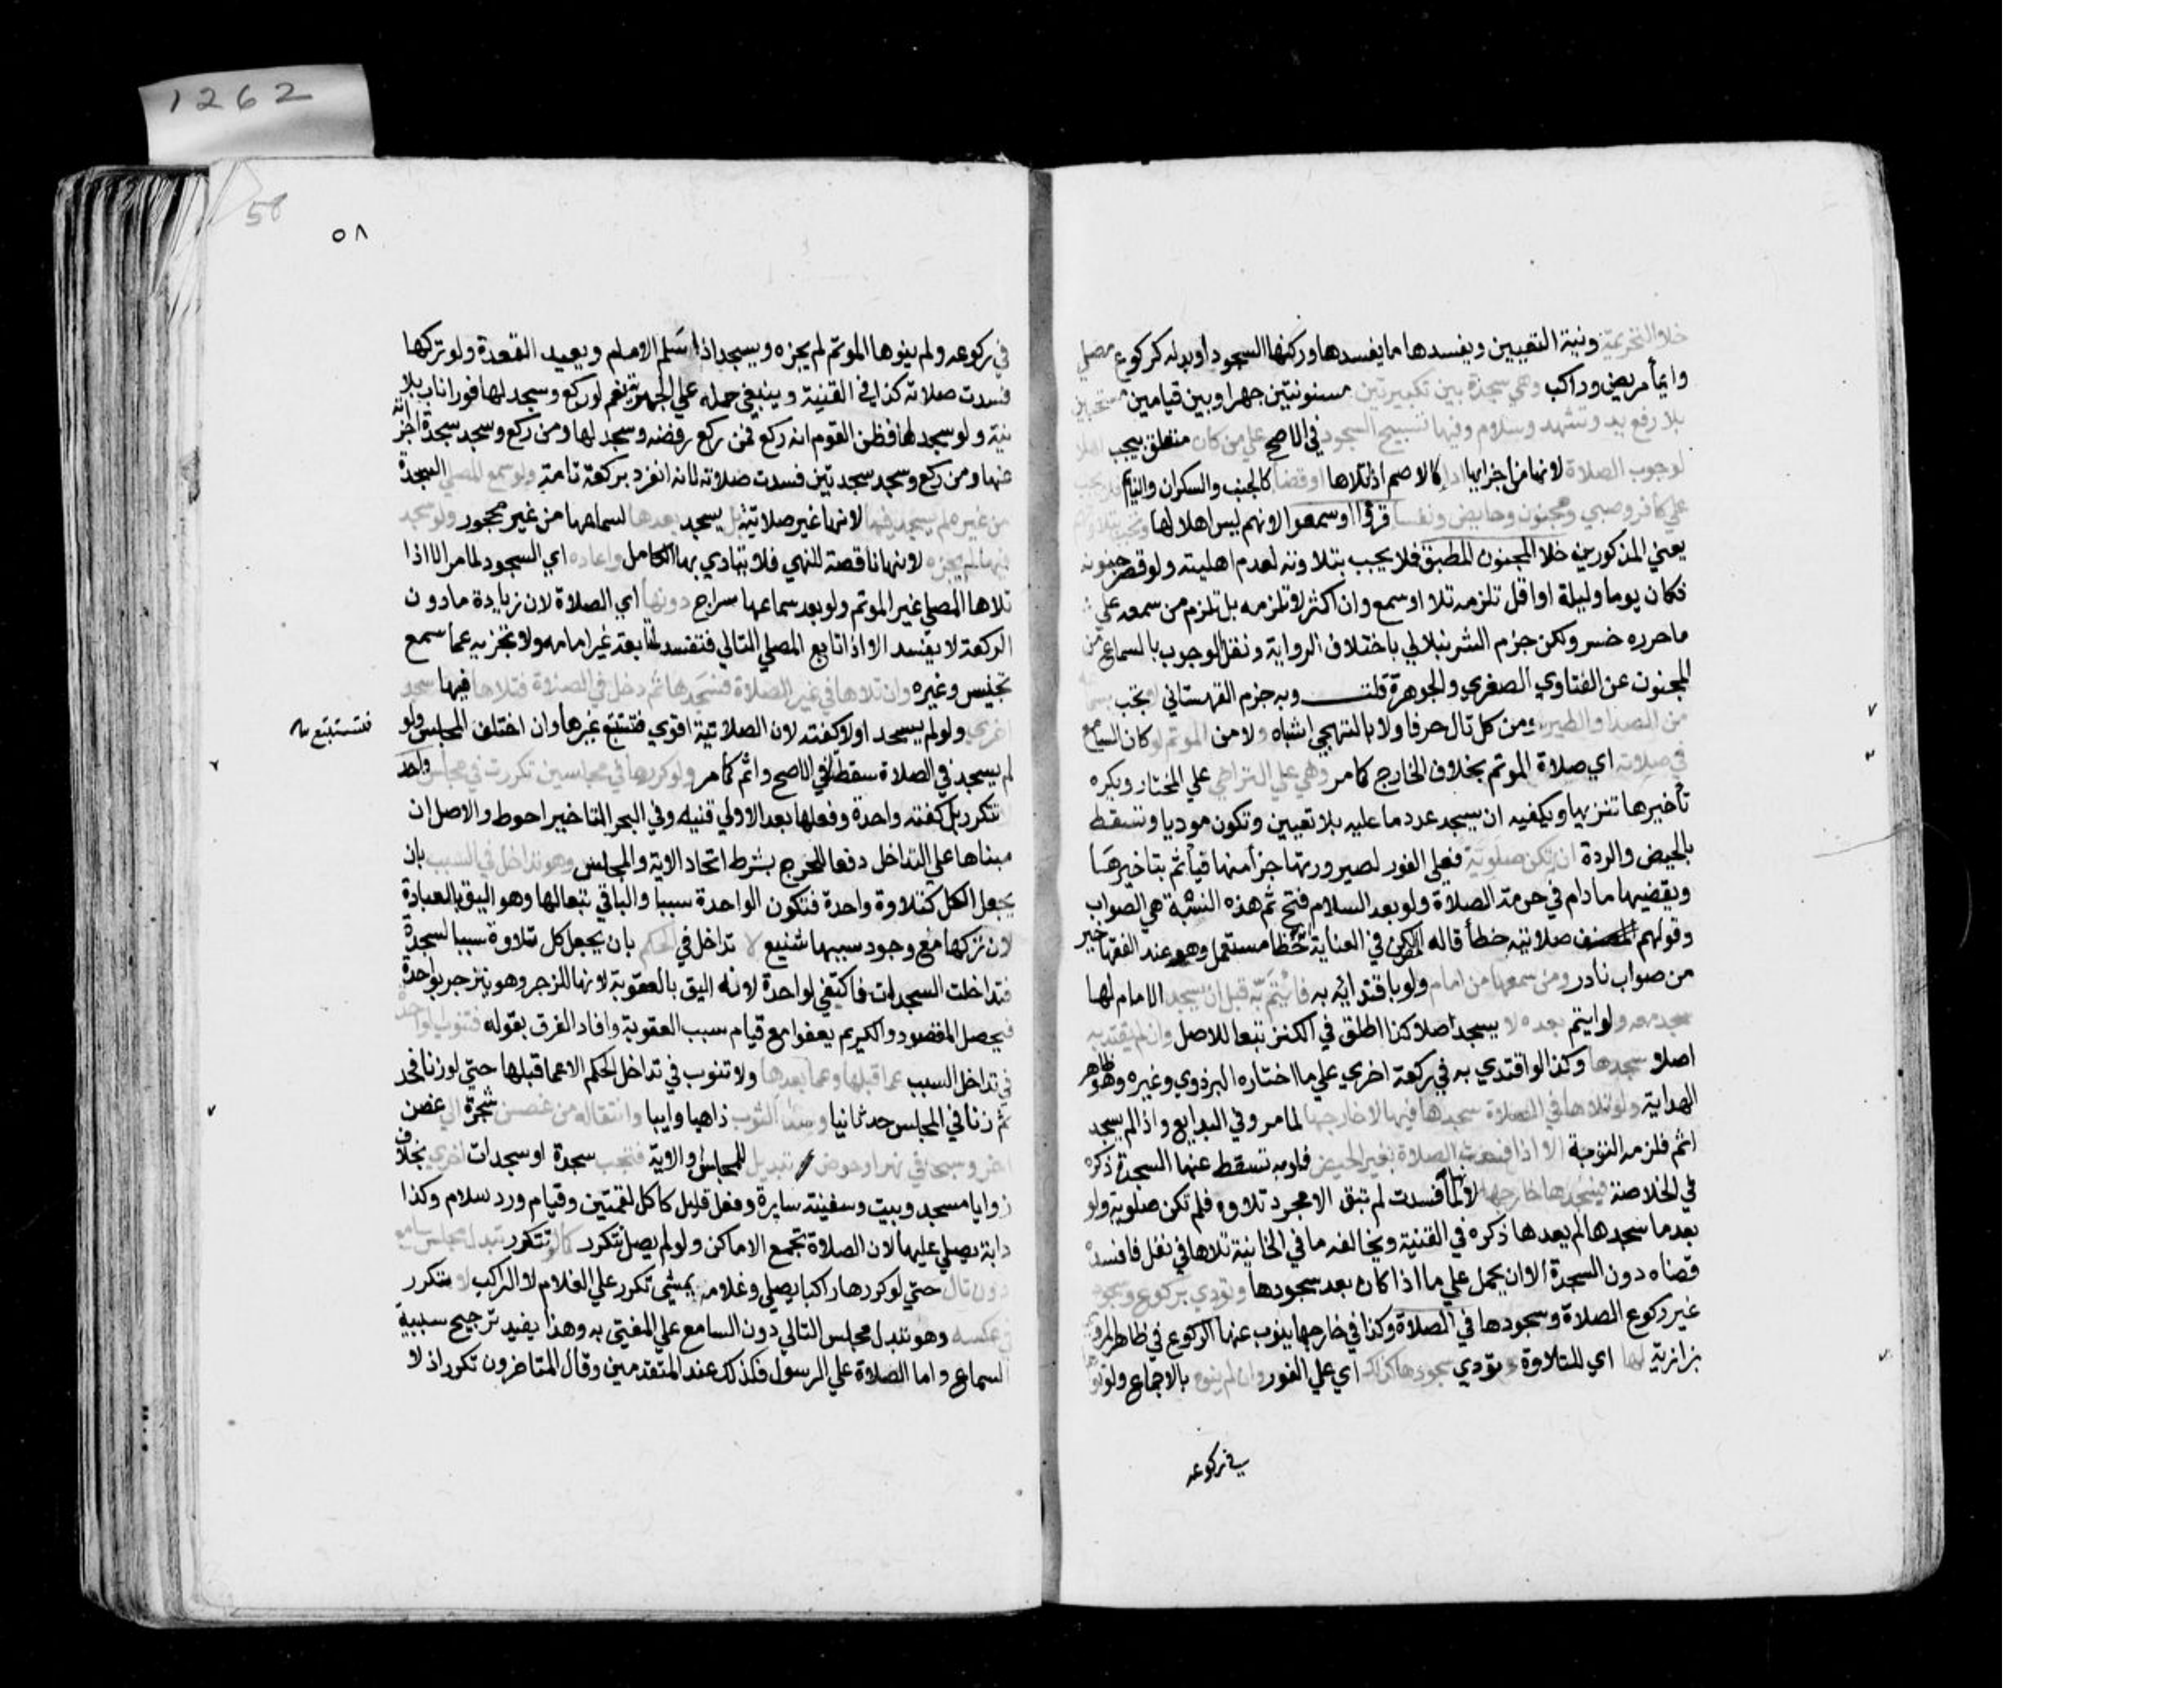 خلا التحريمة ونية التعيين ويفسدها ما يفسدها وركنها السجود او بدله كركوع مصلي
وايمأ مريض وراكب وهي سجدة بين تكبيرتين مسنونتين جهرا وبين قيامين مستحبين
بلا رفع يد وتشهد وسلام وفيها تسبيح السجود في الاصح علي من كان متعلق بيجب اهلا
لوجوب الصلاة لانها من اجزايها ادا كالاصم اذا تلاها اوقضا كالجنب والسكران والنايم فلا يجب
علي كافر وصبي ومجنون وحايض ونفسا قرؤا او سمعوا لانهم ليس اهلا لها وتجب بتلاوتهم
يعني المذكورين خلا المجنون المطبق فلا يجب بتلاوته لعدم اهليته ولو قصر جنونه
فكان يوما وليلة او اقل تلزمه تلا او سمع وان اكثر لا تلزمه بل تلزم من سمعه علي
ما حرره خسرو لكن جزم الشرنبلالي باختلاف الرواية ونقل الوجوب بالسماع من
المجنون عن الفتاوي الصغري والجوهرة قلت وبه جزم القهستاني لا تجب بسماعه
من الصدا والطير ومن كل تال حرفا ولا بالتهجي اشباه ولا من الموتم لو كان السامع
في صلاته اي صلاة الموتم بخلاف الخارج كما مر وهي علي التراخي علي المختار ويكره
تأخيرها تنزيها ويكفيه ان يسجد عدد ما عليه بلا تعيين وتكون موديا وتسقط
بالحيض والردة ان لم تكن صلوية فعلي الفور لصيرورتها جزأ منها فيأثم بتاخيرها
ويقضيها ما دام في حرمة الصلاة ولو بعد السلام فتح ثم هذه النسبة هي الصواب
وقولهم صلاتيه خطأ قاله المصنف لكن في العناية خطا مستعمل وهو عند الفقها خير
من صواب نادر ومن سمعها من امام ولو باقتدايه به فائتم به قبل ان يسجد الامام لها
سجد معه ولو ايتم بعده لا يسجد اصلا كذا اطلق في الكنز تبعا للاصل وان لم يقتد به
اصلا سجدها وكذا لو اقتدي به في ركعة اخري علي ما اختاره البزدوي وغيره وهو ظاهر
الهداية ولو تلاها في الصلاة سجدها فيها لا خارجها لما مر وفي البدايع واذا لم يسجد
اثم فلزمه التوبة الا اذا فسدت الصلاة بغير الحيض فلو به تسقط عنها السجدة ذكره
في الخلاصة فيسجدها خارجها لانها لما فسدت لم تبق الا مجرد تلاوه فلم تكن صلوية ولو
بعد ما سجدها لم يعدها ذكره في القنية ويخالفه ما في الخانية تلاها في نفل فافسده
قضاه دون السجدة الا ان يحمل علي ما اذا كان بعد سجودها وتودي بركوع وسجود
غير ركوع الصلاة وسجودها في الصلاة وكذا في خارجها ينوب عنها الركوع في ظاهر المروي
بزازية لها اي للتلاوة وتودي بسجودها كذلك اي علي الفور وان لم ينو بالاجماع ولو نواها
في ركوعه
1262
58
٥٨
في ركوعه ولم ينوها الموتم لم يجزه ويسجد اذا سلم الامام ويعيد القعدة ولو تركها
فسدت صلاته كذا في القنية وينبغي حمله علي الجهرية نعم لو ركع وسجد لها فورا ناب بلا
نية ولو سجد لها فظن القوم انه ركع فمن ركع رفضه وسجد لها ومن ركع وسجد سجدة اجزأته
عنها ومن ركع وسجد سجدتين فسدت صلاته لانه انفرد بركعة تامة ولو سمع المصلي السجدة
من غيره لم يسجد فيها لانها غير صلاتية بل يسجد بعدها لسماعها من غير محجور ولو سجد
فيها لم يجزه لانها ناقصة للنهي فلا يتادي بها الكامل واعاده اي السجود لما مر الا اذا
تلاها المصلي غير الموتم ولو بعد سماعها سراج دونها اي الصلاة لان زيادة ما دون
الركعة لا يفسد الا اذا تابع المصلي التالي فتفسد لمتابعته غير امامه ولا تجزيه عما سمع
تجنيس وغيره وان تلاها في غير الصلاة فسجدها ثم دخل في الصلاة فتلاها فيها سجد
اخري ولو لم يسجد اولا كفته لان الصلاتية اقوي فتستتبع غيرها وان اختلف المجلس ولو
فتستتبع
لم يسجد في الصلاة سقطتا في الاصح واثم كما مر ولو كررها في مجلسين تكررت في مجلس واحد
لا تتكرر بل كفته واحدة وفعلها بعد الاولي قنيه وفي البحر التاخير احوط والاصل ان
مبناها علي التداخل دفعا للحرج بشرط اتحاد الاية والمجلس وهو تداخل في السبب بان
يجعل الكل كتلاوة واحدة فتكون الواحدة سببا والباقي تبعا لها وهو اليق بالعبادة
لان تركها مع وجود سببها شنيع لا تداخل في الحكم بان يجعل كل تلاوة سببا لسجدة
فتداخلت السجدات فاكتفي لواحدة لانه اليق بالعقوبة لانها للزجر وهو ينزجر بواحدة
فيحصل المقصود والكريم يعفوا مع قيام سبب العقوبة وافاد الفرق بقوله فتنوب الواحدة
في تداخل السبب عما قبلها وعما بعدها ولا تنوب في تداخل الحكم الا عما قبلها حتي لو زنا فحد
ثم زنا في المجلس حد ثانيا وسدا الثوب ذاهبا وايبا وانتقاله من غصن شجرة الي غصن
اخر وسبحا في نهر او حوض تبديل للمجلس والاية فتجب سجدة او سجدات اخري بخلاف
زوايا مسجد وبيت وسفينة سايرة وفعل قليل كاكل لقمتين وقيام ورد سلام وكذا
دابة يصلي عليها لان الصلاة تجمع الاماكن ولو لم يصل تتكرر كما لو تتكرر تبدل مجلس سامع
دون تال حتي لو كررها راكبا يصلي وغلامه يمشي تكرر علي الغلام لا الراكب لا تتكرر
في عكسه وهو تبدل مجلس التالي دون السامع علي المفتي به وهذا يفيد ترجيح سببية
السماع واما الصلاة علي الرسول فكذلك عند المتقدمين وقال المتاخرون تكرر اذ لا